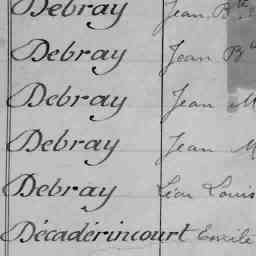 Debray Jean Bte
Debray Jean B
Debray Jean M
Debray Jean M
Debray Léon Louis
Décadérincourt Emile